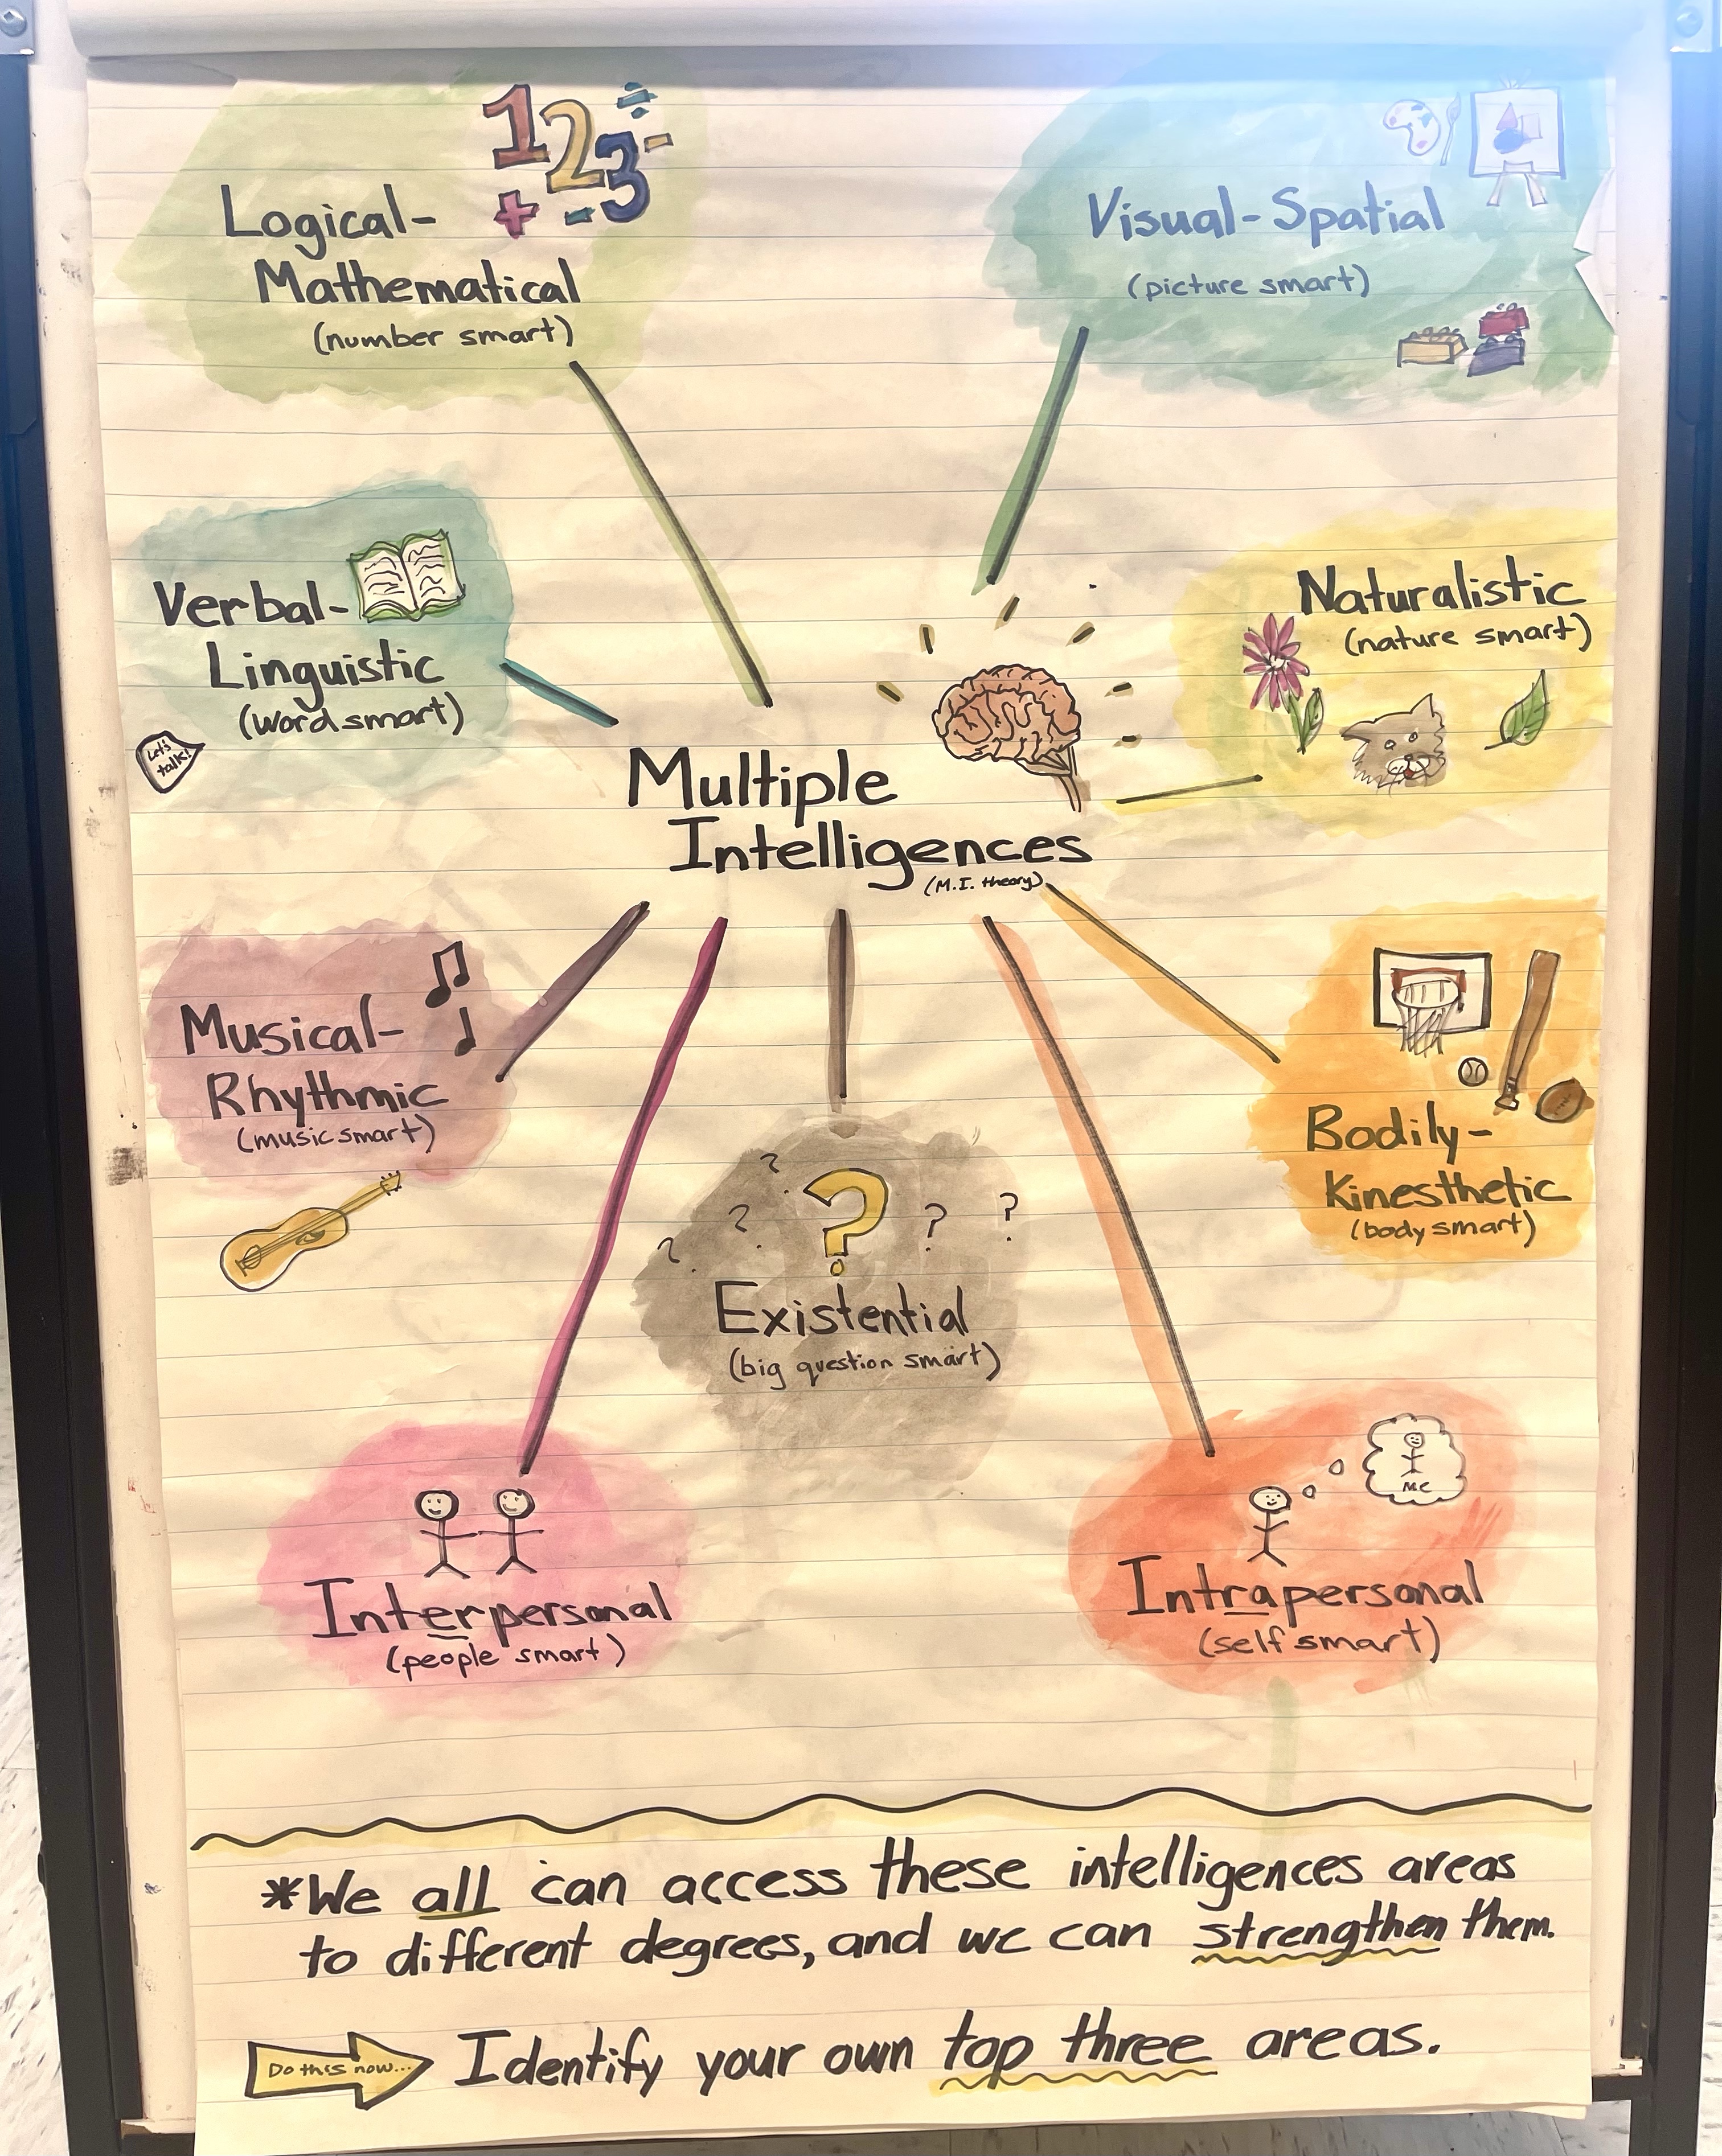 1 2 3
Logical-
Mathematical
(number smart)
Visual-Spatial
(picture smart)
Verbal-
Linguistic
(word smart)
Let's
talk!
Naturalistic
(nature smart)
Multiple
Intelligences
(M.I. theory)
Musical-
Rhythmic
(music smart)
Bodily-
Kinesthetic
(body smart)
? ? ? ? ? ?
Existential
(big question smart)
Interpersonal
(people smart)
ME
Intrapersonal
(self smart)
*We all can access these intelligences areas
to different degrees, and we can strengthen them.
Do this now...
Identify your own top three areas.